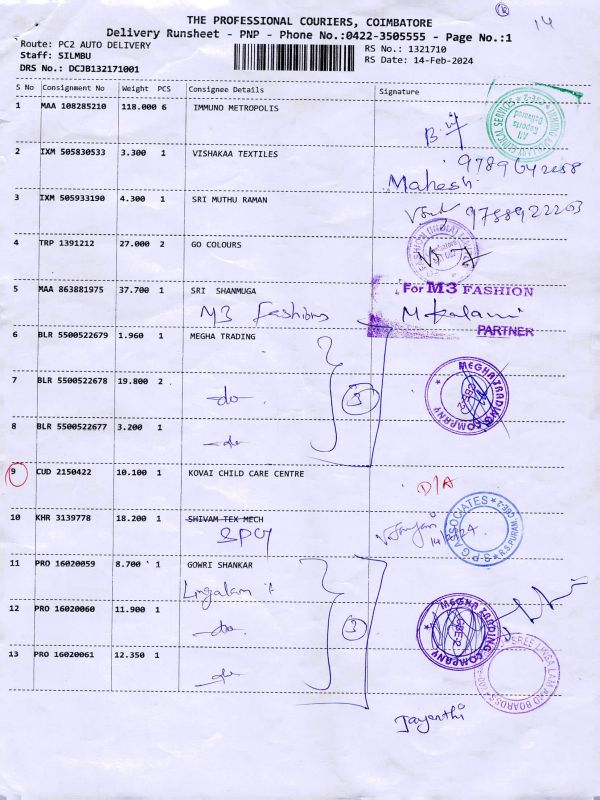 THE PROFESSIONAL COURIERS, COIMBATORE
14
Delivery Runsheet - PNP - Phone No.:0422-3505555 - Page No.:1
Route: PC2 AUTO DELIVERY
RS No.: 1321710
Staff: SILMBU
RS Date: 14-Feb-2024
DRS No.: DCJB132171001
S No Consignment No Weight PCS Consignee Details Signature
1 MAA 108285210 118.000 6 IMMUNO METROPOLIS
2 IXM 505830533 3.300 1 VISHAKAA TEXTILES
Mahesh
3 IXM 505933190 4.300 1 SRI MUTHU RAMAN
9788922203
4 TRP 1391212 27.000 2 GO COLOURS
5 MAA 863881975 37.700 1 SRI SHANMUGA
For M3 FASHION
M3 Fashions
PARTNER
6 BLR 5500522679 1.960 1 MEGHA TRADING
MEGHA TRADING COMPANY
7 BLR 5500522678 19.800 2
-do-
3
8 BLR 5500522677 3.200 1
-do-
9 CUD 2150422 10.100 1 KOVAI CHILD CARE CENTRE
D/A
10 KHR 3139778 18.200 1 SHIVAM TEX MECH
SPG
P-S-P-G ASSOCIATES R.S.PURAM, CBE-2
11 PRO 16020059 8.700 1 GOWRI SHANKAR
12 PRO 16020060 11.900 1
-do-
3
MEGHA TRADING COMPANY
13 PRO 16020061 12.350 1
-do-
Jayanthi